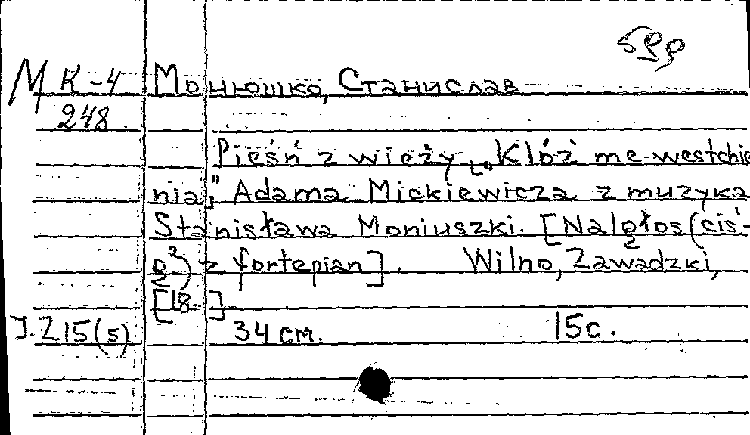 МК-4 Монюшко, Станислав
248
Pieśń z wieży „Któż me westchnie
nia," Adama Mickiewicza z muzyka
Stanisława Moniuszki. [Na głos (ciś-
g²) z fortepian]. Wilno, Zawadzki,
[18- ]
J. 215(5) 34 см. 15с.